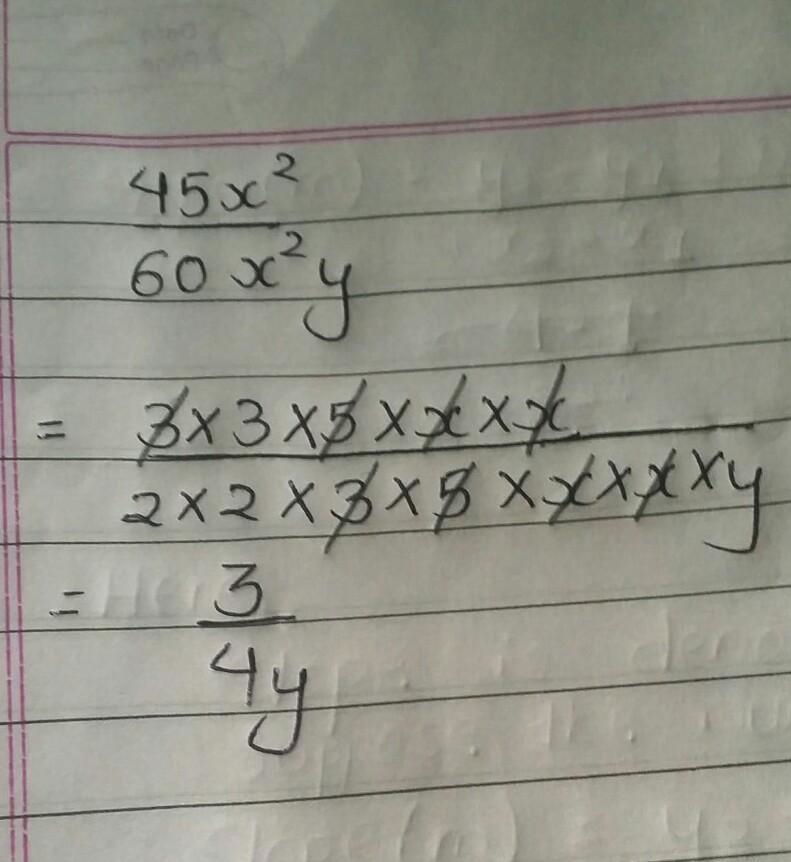 45x²
60x²y
= 3×3×5×x×x
2×2×3×5×x×x×y
= 3
4y